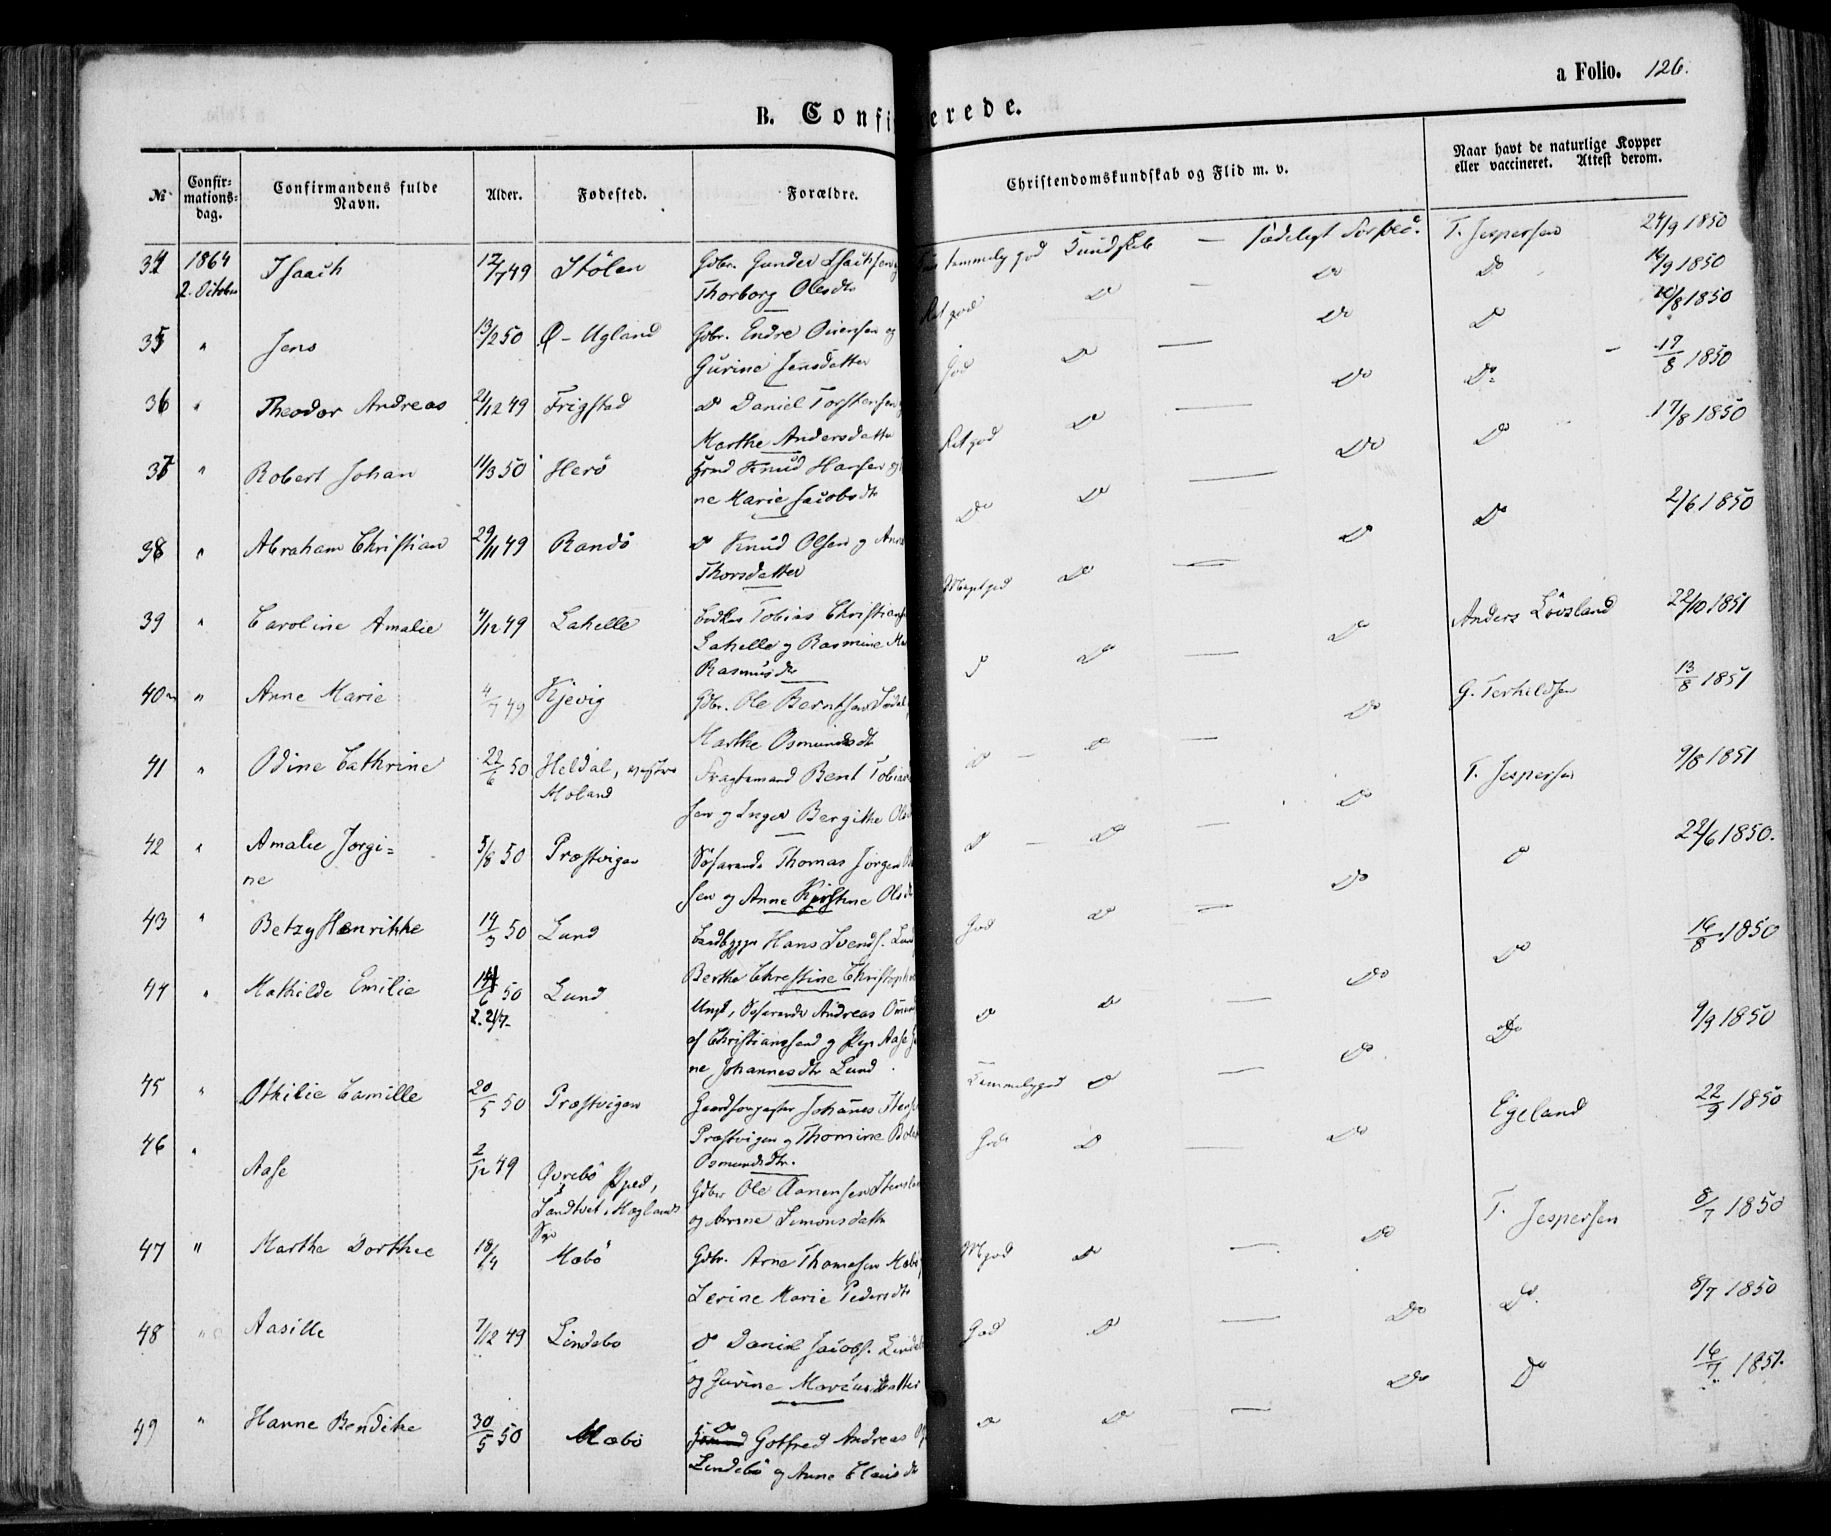 a Folio. 126.
B. Confi erede.
№ Confir-mations-dag. Confirmandens fulde Navn. Alder. Fødested. Forældre. Christendomskundskab og Flid m. v. Naar havt de naturlige Kopper eller vaccineret. Attest derom.
34 1864 2. October Isaach 12/7 49 Stølen Gdbr. Gunder Isachsen
Thorborg Olesdtr
temmelig god Kundskab — Sædeligt Forhold. T. Jespersen 24/9 1850
35 " Jens 13/2 50 Ø-Ugland Gdbr. Endre og
Gurine Jensdatter
Ret god Do — Do Do 16/9 1850
36 " Theodor Andreas 21/12 49 Frigstad Do Daniel Torstensen
Marthe Andersdatter
God Do — Do Do 10/8 1850
37 " Robert Johan 11/3 50 Herø Knud Hansen og
ne Marie Jacobsdtr
Ret god Do — Do Do 17/8 1850
38 " Abraham Christian 29/11 49 Randø Do Knud Olsen og Anne
Thorsdatter
Do Do — Do Do 17/8 1850
39 " Caroline Amalie 4/12 49 Lahelle Tobias Christians
Lahelle og Rasmine
Rasmusdtr
Meget god Do — Do Do 2/6 1850
40 " Anne Marie 4/7 49 Kjevig Gdbr. Ole Berntsen
Marthe Osmundsdtr
Do Do — Do Anders Løvsland 22/10 1851
41 " Odine Cathrine 22/6 50 Heldal, vestre
Moland
Fragtemand Bent Tobias
sen og Inger Bergithe Ols
Do — Do — Do G. Terkildsen 13/8 1851
42 " Amalie Jørgi=
ne
5/8 50 Præstvigen Søfarende Thomas Jørgen
sen og Anne Kirstine Ols
Do — Do — Do T. Jespersen 9/8 1851
43 " Betzy Henrikke 14/3 50 Lund Hans Svends. Lund
Berthe Christine Christoph
God Do — Do Do 22/6 1850.
44 " Mathilde Emilie 14/6 50 Lund
2. 21/7-
Ungk. Søfarende Andreas
af Christianssand og Pige Aase
ne Johannesdtr Lund.
Do Do — Do Do 16/8 1850
45 " Othilie Camille 20/5 50 Præstvigen Johannes
Præstvigen og Thomine
Osmundsdtr.
Temmelig god Do — Do Do 9/9 1850
46 " Aase 2/12 49 Øvrebø Pgd,
Gdbr Ole Aanensen
og Anne Simonsdatter
God Do — Do Egeland 22/9 1850
47 " Marthe Dorthee 18/4 Mæbø Gdbr. Arne Thomesen Mæbø
Serine Marie Pedersdtr
M god Do — Do T. Jespersen 8/7 1850
48 " Aasille 7/12 49 Lindebo Do Daniel Jacobs. Lindeb
og Gurine Marcusdatter
God Do — Do Do 8/7 1850
49 " Hanne Bendike 30/5 50 Mæbø Do Gotfred Andreas
Lindebø og Anne Clausdtr
Do Do — Do Do 16/7 1851.